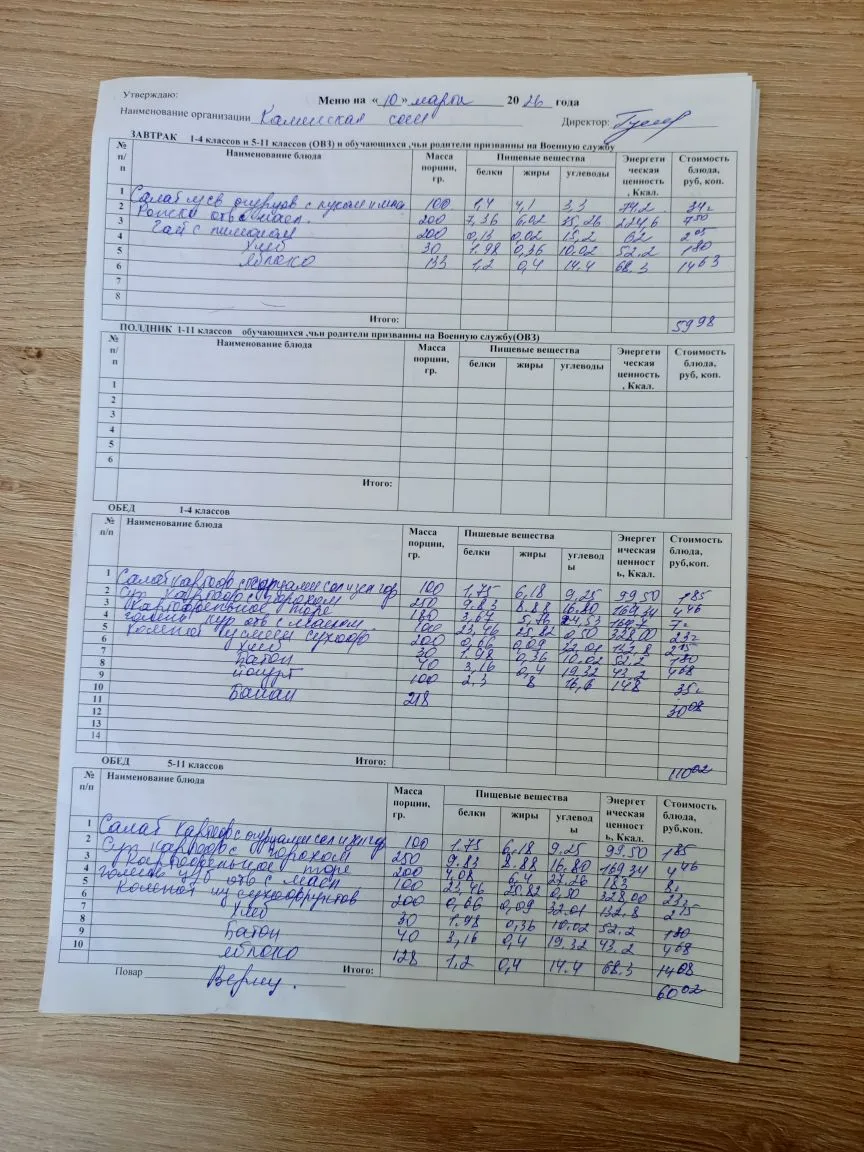 Утверждаю:
Меню на «10» марта 2026 года
Наименование организации Каменская сош Директор:
ЗАВТРАК 1-4 классов и 5-11 классы (ОВЗ) и обучающихся ,чьи родители призванны на Военную службу
№ п/п Наименование блюда Масса порции, гр. Пищевые вещества белки жиры углеводы Энергетическая ценность, Ккал. Стоимость блюда, руб, коп.
1 Салат из св огурцов с луком и мас 100 1,4 4,1 3,3 74.2
2 отв с масл. 200 7,36 6,02 35,26 224,6 7 50
3 Чай с лимоном 200 0,13 0,02 15,2 62 2 05
4 Хлеб 30 1.98 0,36 10.02 52.2 1 80
5 яблоко 133 1,2 0,4 14.4 68.3 14 63
6
7
8
Итого: 59 98
ПОЛДНИК 1-11 классов обучающихся ,чьи родители призванны на Военную службу(ОВЗ)
№ п/п Наименование блюда Масса порции, гр. Пищевые вещества белки жиры углеводы Энергетическая ценность, Ккал. Стоимость блюда, руб, коп.
1
2
3
4
5
6
Итого:
ОБЕД 1-4 классов
№ п/п Наименование блюда Масса порции, гр. Пищевые вещества белки жиры углеводы Энергетическая ценность, Ккал. Стоимость блюда, руб,коп.
1 Салат картоф с огурцами сол и зел гор 100 1,75 6,18 9,25 99.50
2 Суп картоф с горохом 250 9.83 8.88 16.80 169,34 4 46
3 Картофельное пюре 3,67 5,76 24,53 7
4 голень кур отв с маслом 100 23,46 25,82 0,50 328,00
5 Компот из смеси сухофр 200 0,66 0,09 32,01 132,8 2 15
6 Хлеб 30 1.98 0,36 10.02 52.2 1 80
7 Батон 40 3,16 0,4 19,32 43,2 4 68
8 йогурт 100 2.3 8 16,6 148
9 Банан 218 30 08
10
11
12
13
14
Итого: 110 02
ОБЕД 5-11 классов
№ п/п Наименование блюда Масса порции, гр. Пищевые вещества белки жиры углеводы Энергетическая ценность, Ккал. Стоимость блюда, руб,коп.
1 Салат картоф с огурцами сол и зел гор 100 1.75 6,18 9,25 99.50
2 Суп картоф с горохом 250 9.83 8.88 16,80 169,34 4 46
3 Картофельное пюре 200 4,08 6,4 27.26 183 8
4 голень кур отв с масл 100 23,46 25.82 0,50 328,00
5 Компот из сухофруктов 200 0,66 0,09 32.01 132,8 2 15
6 Хлеб 30 1.98 0,36 10.02 52.2 1 80
7 Батон 40 3,16 0,4 19.32 43.2 4 68
8 яблоко 128 1.2 0,4 14.4 68.3 14 08
9
10
Повар Итого: 60 02